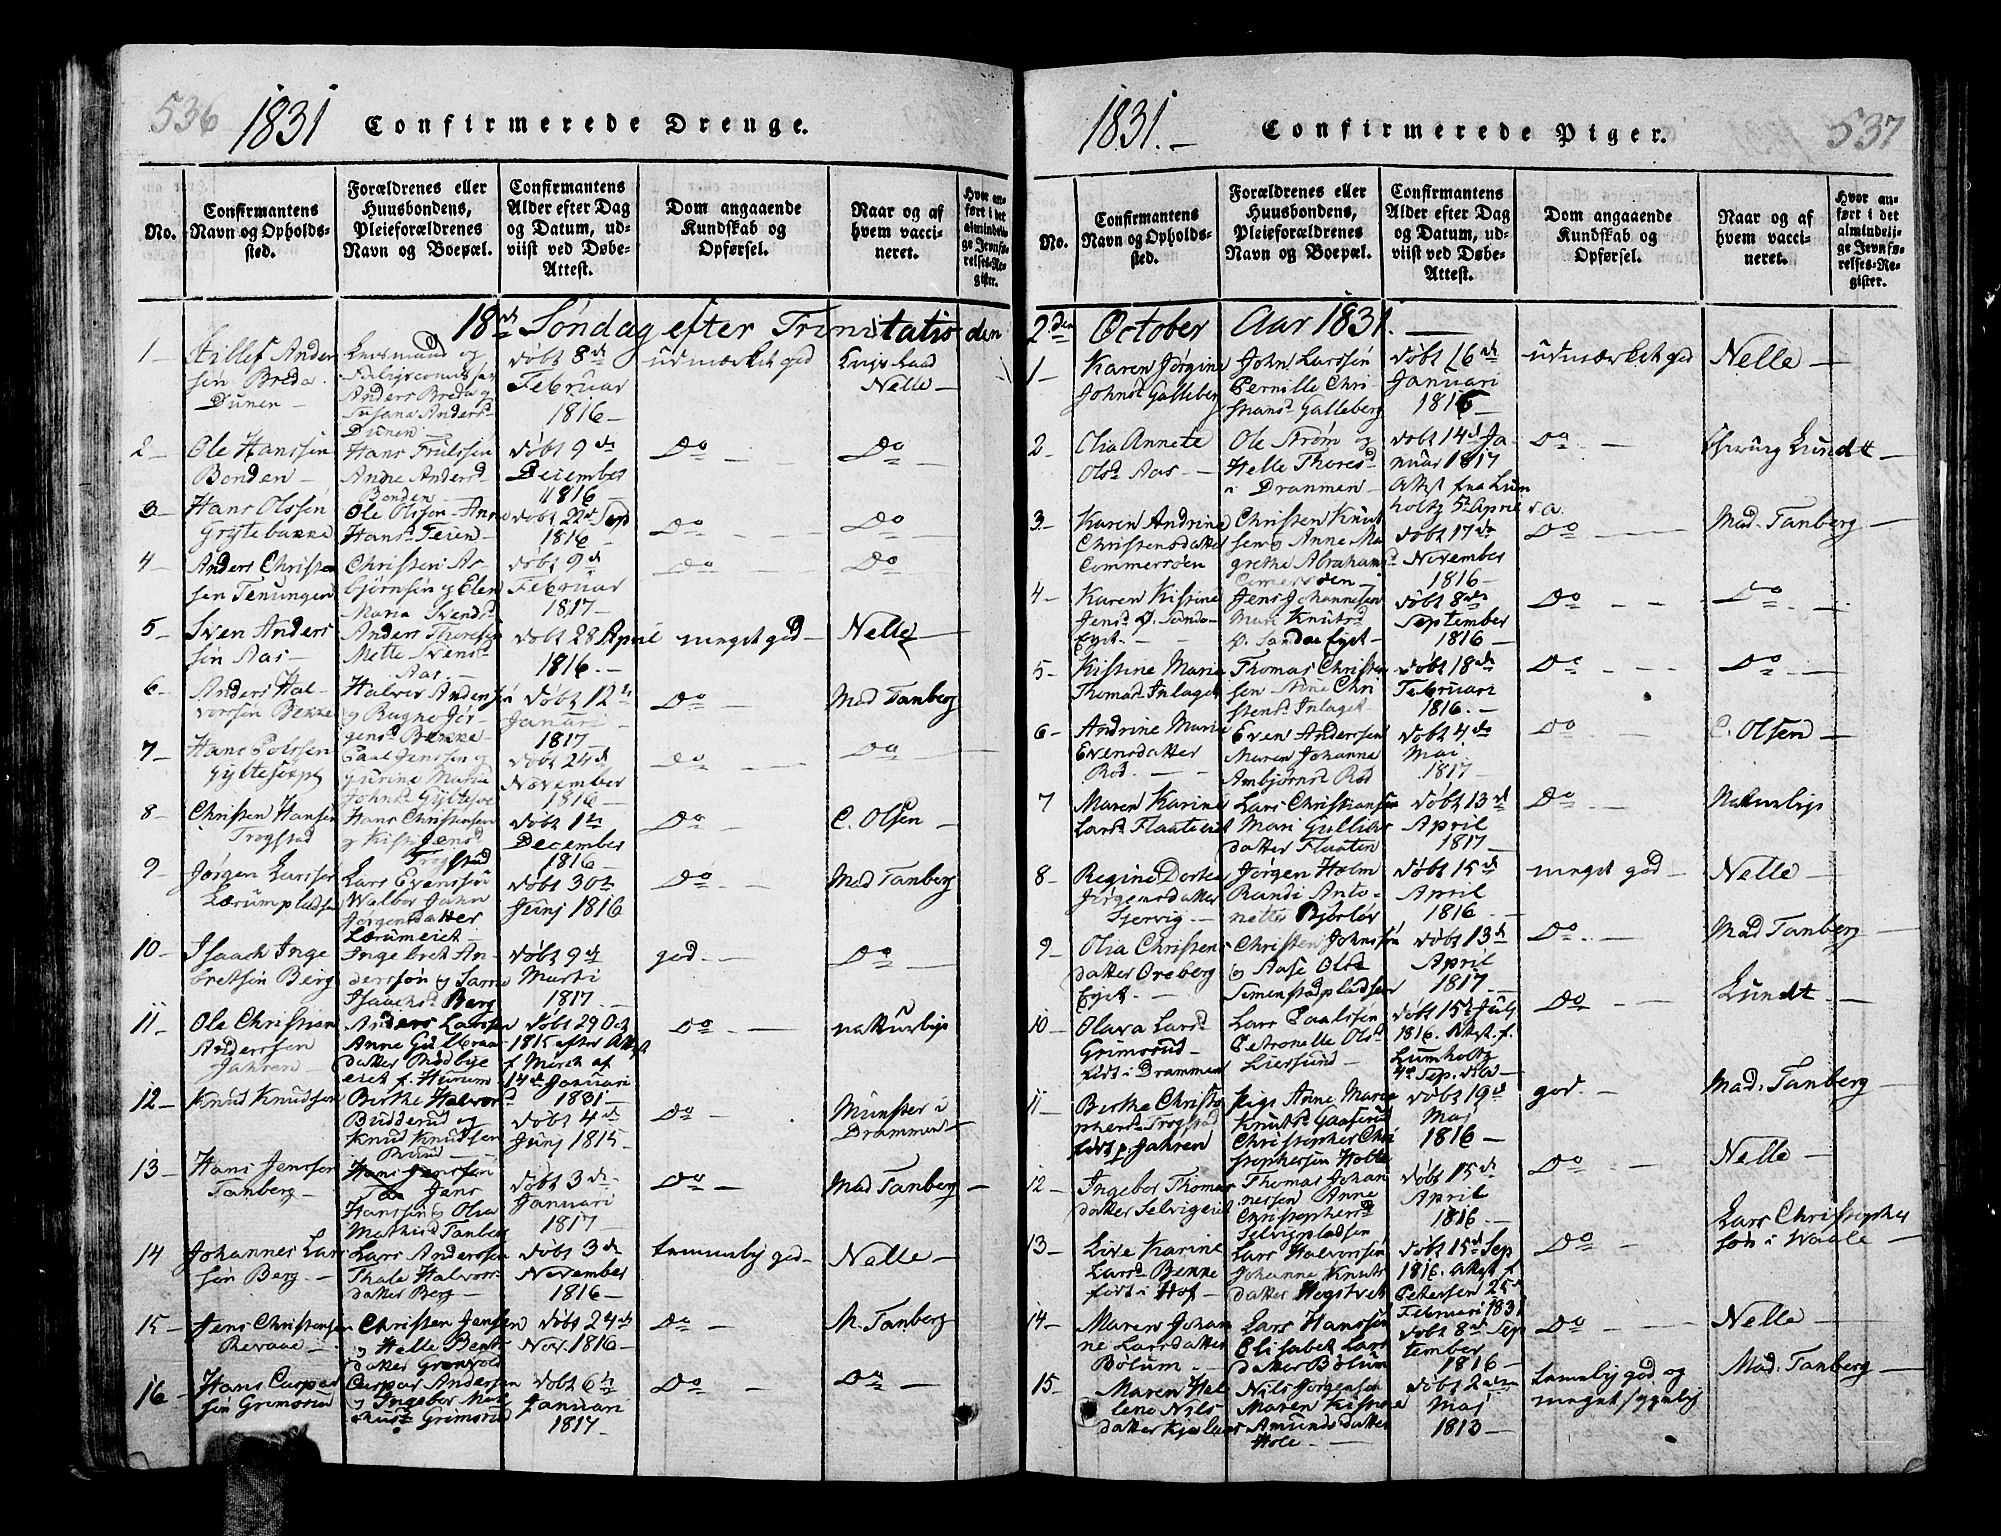 536
1831 Confirmerede Drenge.
No.
Confirmantens
Navn og Opholds-
sted.
Forældrenes eller
Huusbondens,
Pleieforældrenes
Navn og Boepæl.
Confirmantens
Alder efter Dag
og Datum, ud-
viist ved Døbe-
Attest.
Dom angaaende
Kundskab og
Opførsel.
Naar og af
hvem vacci-
neret.
Hvor an-
ført i det
almindeli-
ge Jevnfø-
relses-Re-
gister.
18de Søndag efter Trinitatis den
1
Anders-
søn Breda
Dunen
Lensmand og
Anders Breda og
Susana Anders
Dunen
døbt 8de
Februar
1816
udmærket god
Nelle
2
Ole Hanssen
Bonden
Hans
Anne Andersd
Bonden
døbt 9de
December
1816
Do
Do
3
Hans Olssøn
Gryte
Ole Olsson Anne
Hansd
døbt 22d Sep
1816
Do
Do
4
Anders Christen
sen
Christen As-
bjørnsøn og Elen
Maria Svendsd
døbt 9de
Februar
1817
Do
Do
5
Sven Anders
søn Aas
Anders Thoresen
Mette Svensd
Aas
døbt 28 April
1816.
meget god
Nelle
6
Anders Hal-
vorssøn Bekke
Halvor Anderssøn
og Ragne Jør-
gensd Bekke
døbt 12te
Januari
1817
Do
Mad Tanberg
7
Hans Polssen
Paal Jenssen og
Maria
Johnsd
døbt 24de
November
1816
Do
Do
8
Christen Hansen
Trogstad
Hans Christensen
og Jensd
Trogstad
døbt 1te
December
1816
Do
C. Olsen
9
Jørgen Larssen
Lærumpladsen
Lars Evenssøn
Walbor
Jørgensdatter
Lærumeiet
døbt 30te
Junj 1816
Do
Mad Tanberg
10
Isaach Inge
bretsøn Berg
Ingebret An-
derssøn og Sara
Isaachsd Berg
døbt 9de
Marti
1817.
god.
Do
11
Ole Christian
Anderssen
Jahren
Anders Larssen
Anne
datter
eiet f. Hurum
døbt 29 Oct
1815 efter Attest
f. af
14de Januari
1831
Do
naturlig
12
Knud Knudsen
Birthe Halvorsd
Budderud og
Knud Knudsen
døbt 4de
Junj 1815
Do
Munster i
Drammen
13
Hans Jenssen
Tanberg
Jens
Hanssen og Olia
Mathisd Tanberg
døbt 3de
Januari
1817
Do
Mad Tanberg
14
Johannes Lars
søn Berg.
Lars Anderssen
Thale Halvors-
datter Berg
døbt 3de
November
1816
temmelig god
Nelle
15
Jens Christensen
Revaae
Christen Jensen
og Helle Bents
datter
døbt 24de
Nov. 1816
Do
M. Tanberg
16
Hans Caspar
søn Grimsrud
Caspar Andersen
og Ingebor
Grimsrud
døbt 6te
Januari
1817
Do
Do
537
1831. Confirmerede Piger.
No.
Confirmantens
Navn og Opholds-
sted.
Forældrenes eller
Huusbondens,
Pleieforældrenes
Navn og Boepæl.
Confirmantens
Alder efter Dag
og Datum, ud-
viist ved Døbe-
Attest.
Dom angaaende
Kundskab og
Opførsel.
Naar og af
hvem vacci-
neret.
Hvor an-
ført i det
almindelig-
ge Jevnfø-
relses-Re-
gister.
2den October Aar 1831.
1
Karen Jørgine
Johnsd Galleberg
John Larssøn
Pernille Chri-
stiansd Galleberg
døbt 16de
Januari
1816
udmærket god
Nelle
2
Olia Annete
Olsd Aas
Ole Strøm og
Helle Thoresd
i Drammen
døbt 14d Ja-
nuar 1817
Attest fra Lum
holtz 5te April d. a.
Do
Lundt
3
Karen Andrine
Christensdatter
Commersøen
Christen Knut
sen og Anne Ma
grethe Abrahamsd
døbt 17de
November
1816
Do
Mad. Tanberg
4
Karen Kistine
Jensd
Eyet.
Jens Johannesen
Mari Knutsd
Eyet
døbt 8de
September
1816
Do
Do
5
Kistine Maria
Thomasd Inlaget
Thomas Christen
sen Chri
stensd Inlaget
døbt 18de
Februari
1816.
Do
Do
6
Andrine Marie
Evensdatter
Rød
Even Anderssen
Maren Johanne
Ambjørnsd Rød
døbt 4de
Mai
1817
Do
C. Olsen
7
Maren Karine
Larsd
Lars Christiansen
Mari Gullies
datter Flaaten
døbt 13de
April
1817
Do
Naturlig
8
Regine Dorthea
Jørgensdatter
Jørgen Holm
Randi Anto-
nette
døbt 15de
April
1816
meget god
Nelle
9
Olia Christens
datter Oreberg
Eyet.
Christen Johnssøn
og Aase Olsd
Simenstadpladsen
døbt 13de
April
1817
Do
Mad Tanberg
10
Olava Larsd
Grimsrud
født i Drammen
Lars Paalssen
Petronelle Olsd
Liersund
døbt 15de July
1816. Attest f.
Lumholtz
4de Sep. d.a
Do
Lundt
11
Birthe Christo
phersd Trogstad
født p. Jahren
Pige Anne Marie
Knutsd Gaaserud
Christopher Chri
stophersen Holte
døbt 19de
Maj
1816
god.
Mad. Tanberg
12
Ingebor Thomas
datter Selvigeiet
Thomas Johan
nessen Anne
Christophersd
Selvigpladsen
døbt 15de
April
1816
Do
Nelle
13
Live Karine
Larsd Bekke
født i Hof
Lars Halvorssen
Johanne Knuts
datter Hogstvet
døbt 15de Sep
1816. Attest f.
Petersen 25de
Februari 1831
Do
Lars Christopher
søn i Waale
14
Maren Johan
ne Larsdatter
Bolum
Lars Hanssøn
Elisabet Lars
datter Bolum
døbt 8de Sep
tember
1816
Do
Nelle
15
Maren He-
lene Nils
datter
Nils Jørgensen
Maren Kistine
Amundsdatter
Hole
døbt 2den
Maj
1813
temmelig god og
meget sygelig
Mad. Tanberg